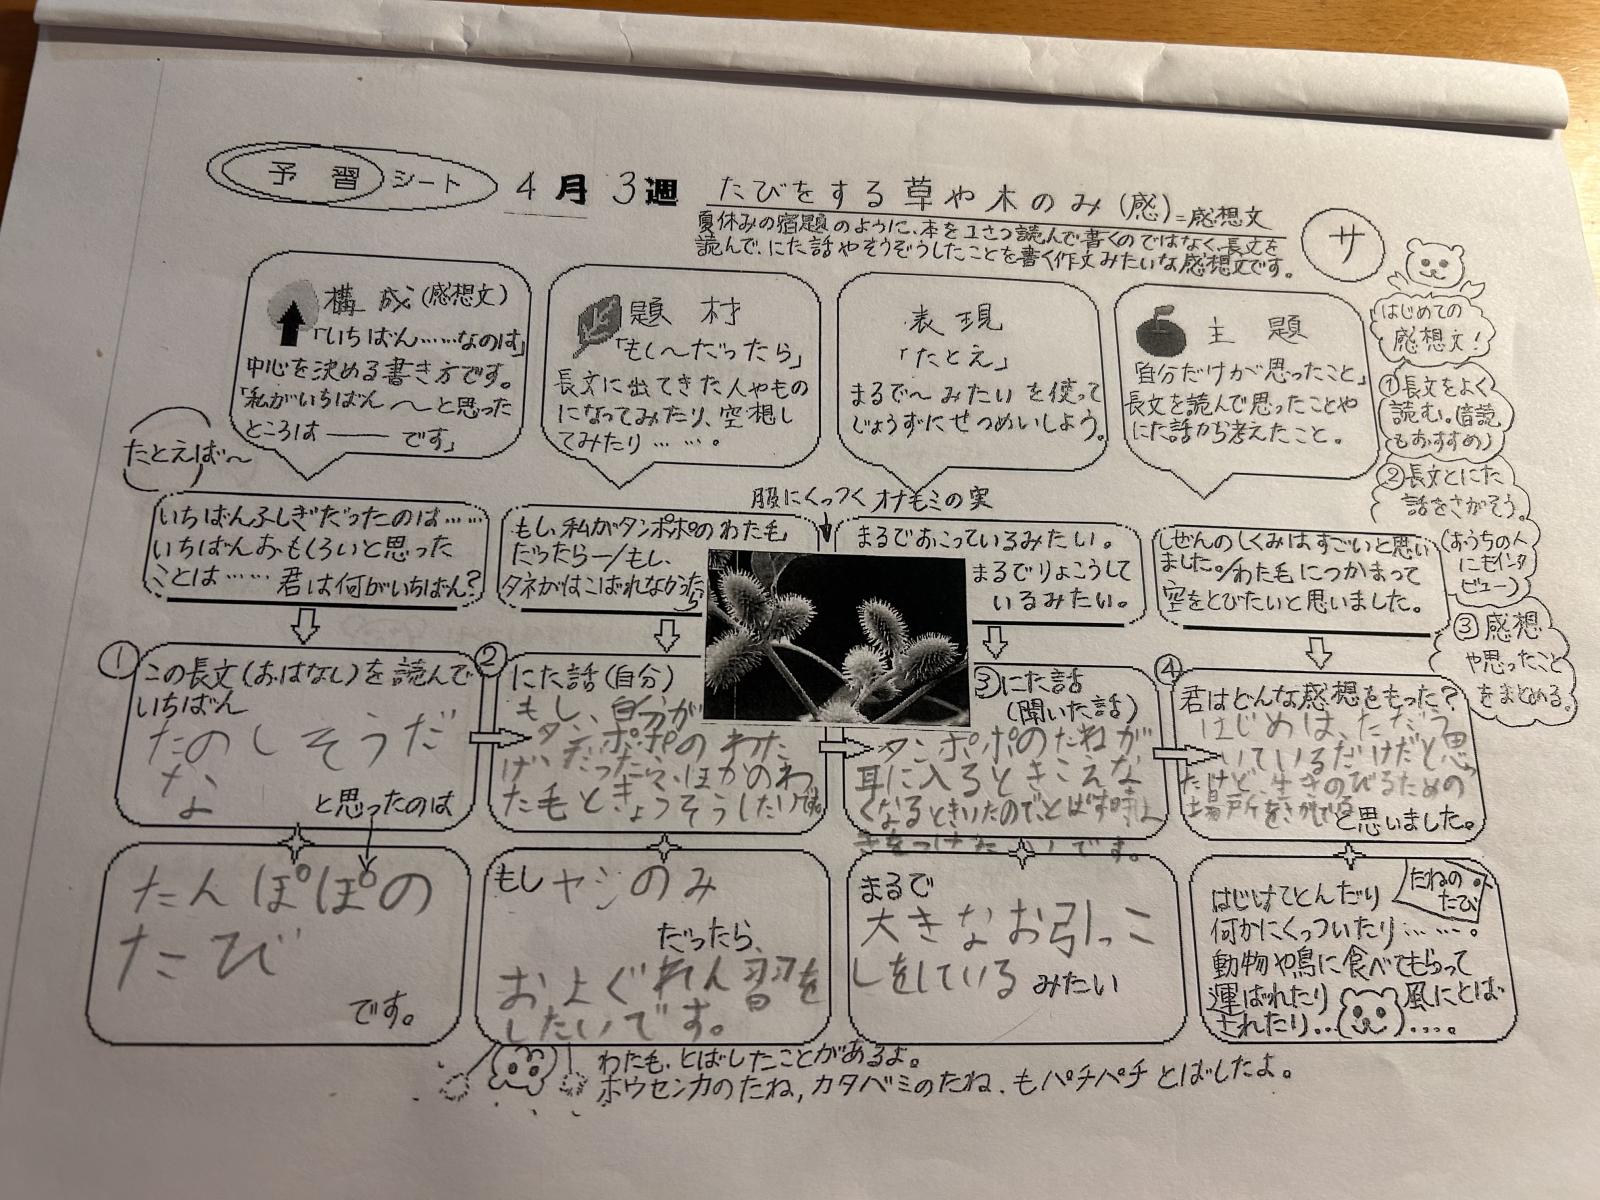 予習シート 4月3週 たびをする草や木のみ(感)=感想文
夏休みの宿題のように、本を1さつ読んで書くのではなく、長文を
読んで、にた話やそうぞうしたことを書く作文みたいな感想文です。
サ
構成(感想文)
「いちばん……なのは」
中心を決める書き方です。
「私がいちばん〜と思った
ところは――です」
題材
「もし〜だったら」
長文に出てきた人やもの
になってみたり、空想し
てみたり……。
表現
「たとえ」
まるで〜みたいを使って
じょうずにせつめいしよう。
主題
「自分だけが思ったこと」
長文を読んで思ったことや
にた話から考えたこと。
はじめての
感想文!
①長文をよく
読む。(音読
もおすすめ)
②長文とにた
話をさがそう。
(おうちの人
にもインタ
ビュー)
③感想
や思ったこと
をまとめる。
たとえば〜
いちばんふしぎだったのは……
いちばんおもしろいと思った
ことは……君は何がいちばん?
もし、私がタンポポのわた毛
だったら―/もし、
タネがはこばれなかったら
服にくっつくオナモミの実
まるでおこっているみたい。
まるでりょこうして
いるみたい。
しぜんのしくみはすごいと思い
ました。/わた毛につかまって
空をとびたいと思いました。
①この長文(おはなし)を読んで
いちばん
たのしそうだ
な
と思ったのは
たんぽぽの
たび
です。
②にた話(自分)
もし、自分が
タンポポのわた
げ、だったら、ほかのわ
た毛ときょうそうしたいです。
もしヤシのみ
だったら、
およぐれん習を
したいです。
③にた話
(聞いた話)
タンポポのたねが
耳に入るときこえな
くなるときいたので、とばす時は
きをつけたいです。
まるで
大きなお引っこ
しをしているみたい
④君はどんな感想をもった?
はじめは、ただう
いているだけだと思っ
たけど、生きのびるための
場所をさがしてると思いました。
たねの
たび
はじけてとんだり
何かにくっついたり……。
動物や鳥に食べてもらって
運ばれたり 風にとば
されたり……。
わたも、とばしたことがあるよ。
ホウセンカのたね,カタバミのたね、もパチパチとばしたよ。